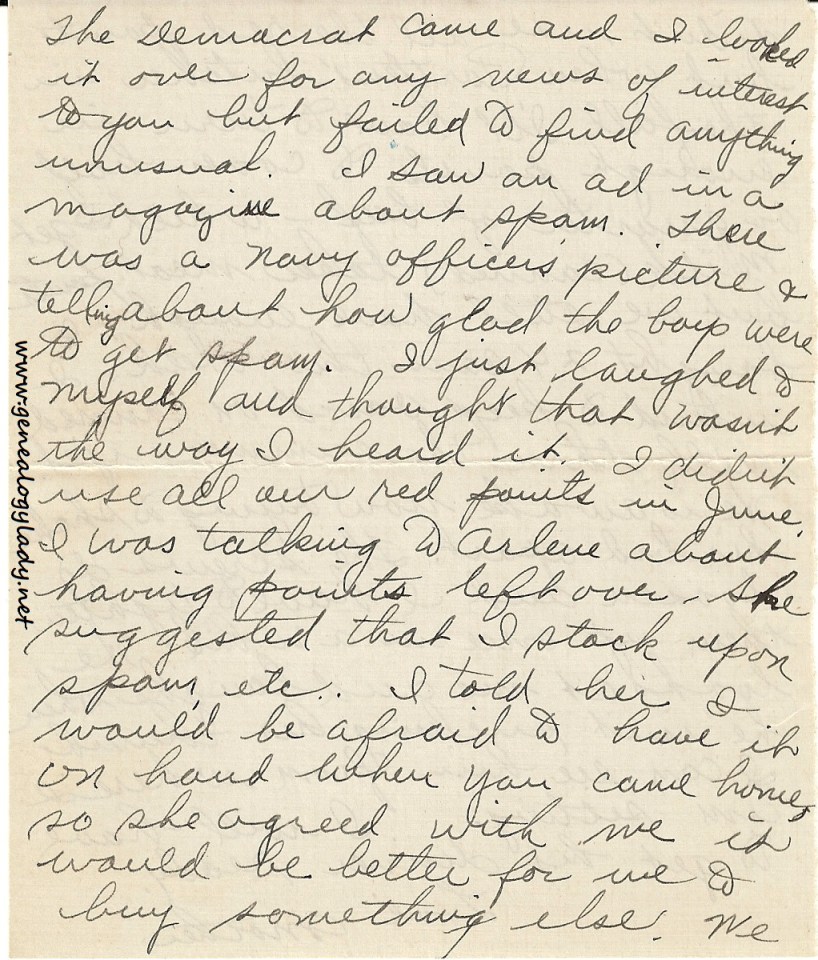 The Democrat came and I looked
it over for any news of interest
to you but failed to find anything
unusual. I saw an ad in a
magazine about spam. There
was a navy officer's picture &
telling about how glad the boys were
to get spam. I just laughed to
myself and thought that wasn't
the way I heard it. I didn't
use all our red points in June.
I was talking to Arlene about
having points left over. She
suggested that I stock upon
spam, etc.. I told her I
would be afraid to have it
on hand when you came home,
so she agreed with me it
would be better for me to
buy something else. We
www.genealogylady.net